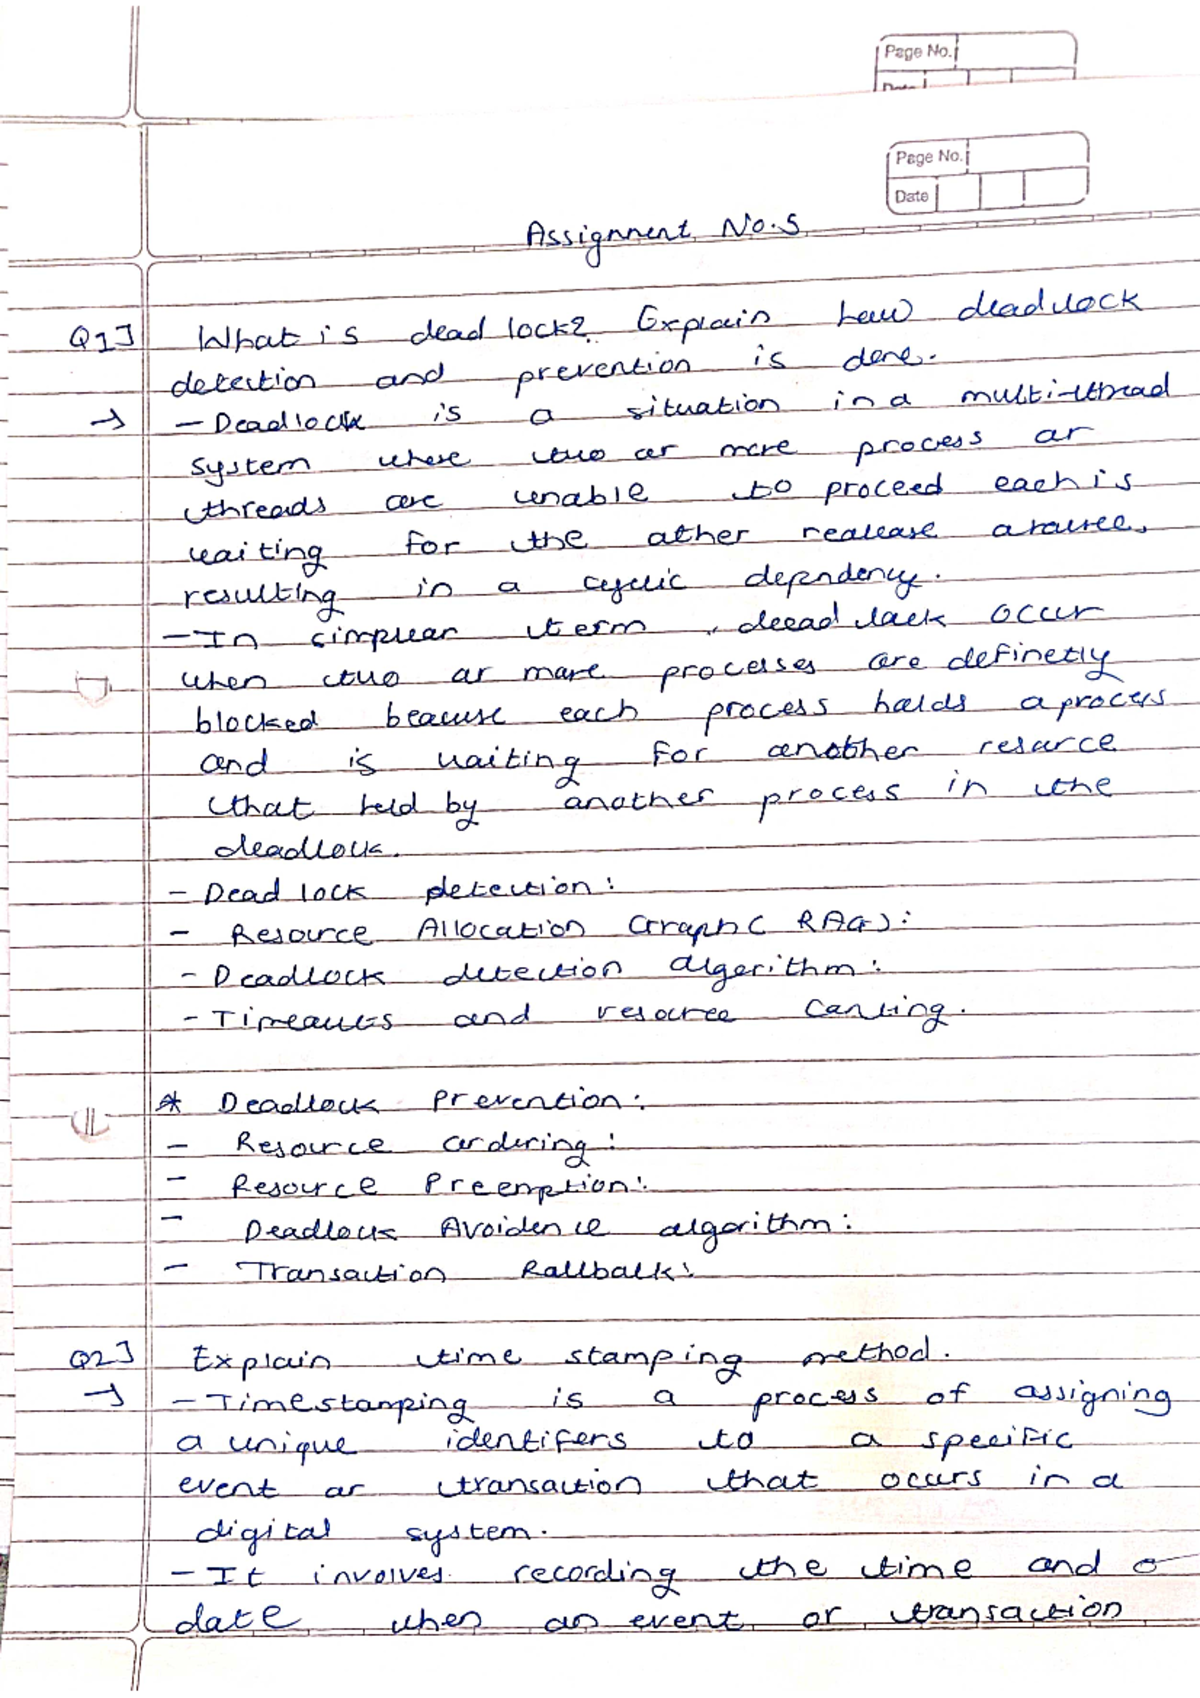 Page No.
Page No.
Date
Assignment No.5
Q1] What is dead lock? Explain how deadlock
detection and prevention is done.
→ - Deadlock is a situation in a multi-thread
system where two or more process or
threads are unable to proceed each is
waiting for the other realease a
resulting in a cyclic dependency.
- In simplear term, deead lock occur
when two or more processes are definetly
blocked beacuse each process holds a process
and is waiting for another resarce
that held by another process in the
deadlock.
- Dead lock detection:
- Resource Allocation Graph ( RAG):
- Deadlock detection algorithm:
- Timeouts and resource
* Deadlock Prevention:
- Resource ordering:
- Resource Preemption:
- Deadlock Avoidence algorithm:
- Transaction Rollback:
Q2] Explain time stamping method.
→ - Timestamping is a process of assigning
a unique identifers to a specific
event or transaction that occurs in a
digital system.
- It involves recording the time and
date when an event or transaction